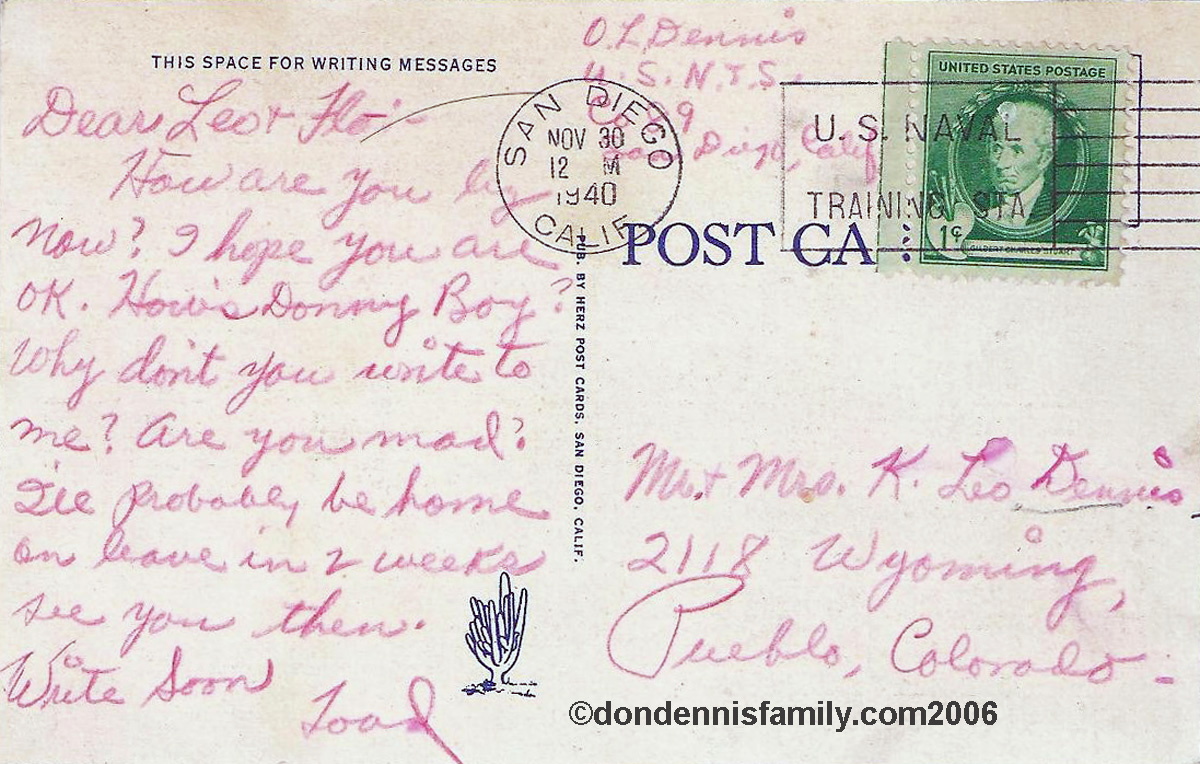 THIS SPACE FOR WRITING MESSAGES
Dear Leo & Flo-
How are you by
Now? I hope you are
OK. How's Donny Boy?
Why don't you write to
me? Are you mad?
I'll probably be home
on leave in 2 weeks
see you then.
Write Soon
Toad
O.L. Dennis
U.S.N.T.S.
Co 49
San Diego, Calif
SAN DIEGO
NOV 30
12 M
1940
CALIF
U.S. NAVAL
TRAINING STA
UNITED STATES POSTAGE
1¢
GILBERT CHARLES STUART
POST CA
PUB. BY HERZ POST CARDS, SAN DIEGO, CALIF.
Mr. & Mrs. K. Leo Dennis
2118 Wyoming,
Pueblo, Colorado-
©dondennisfamily.com2006